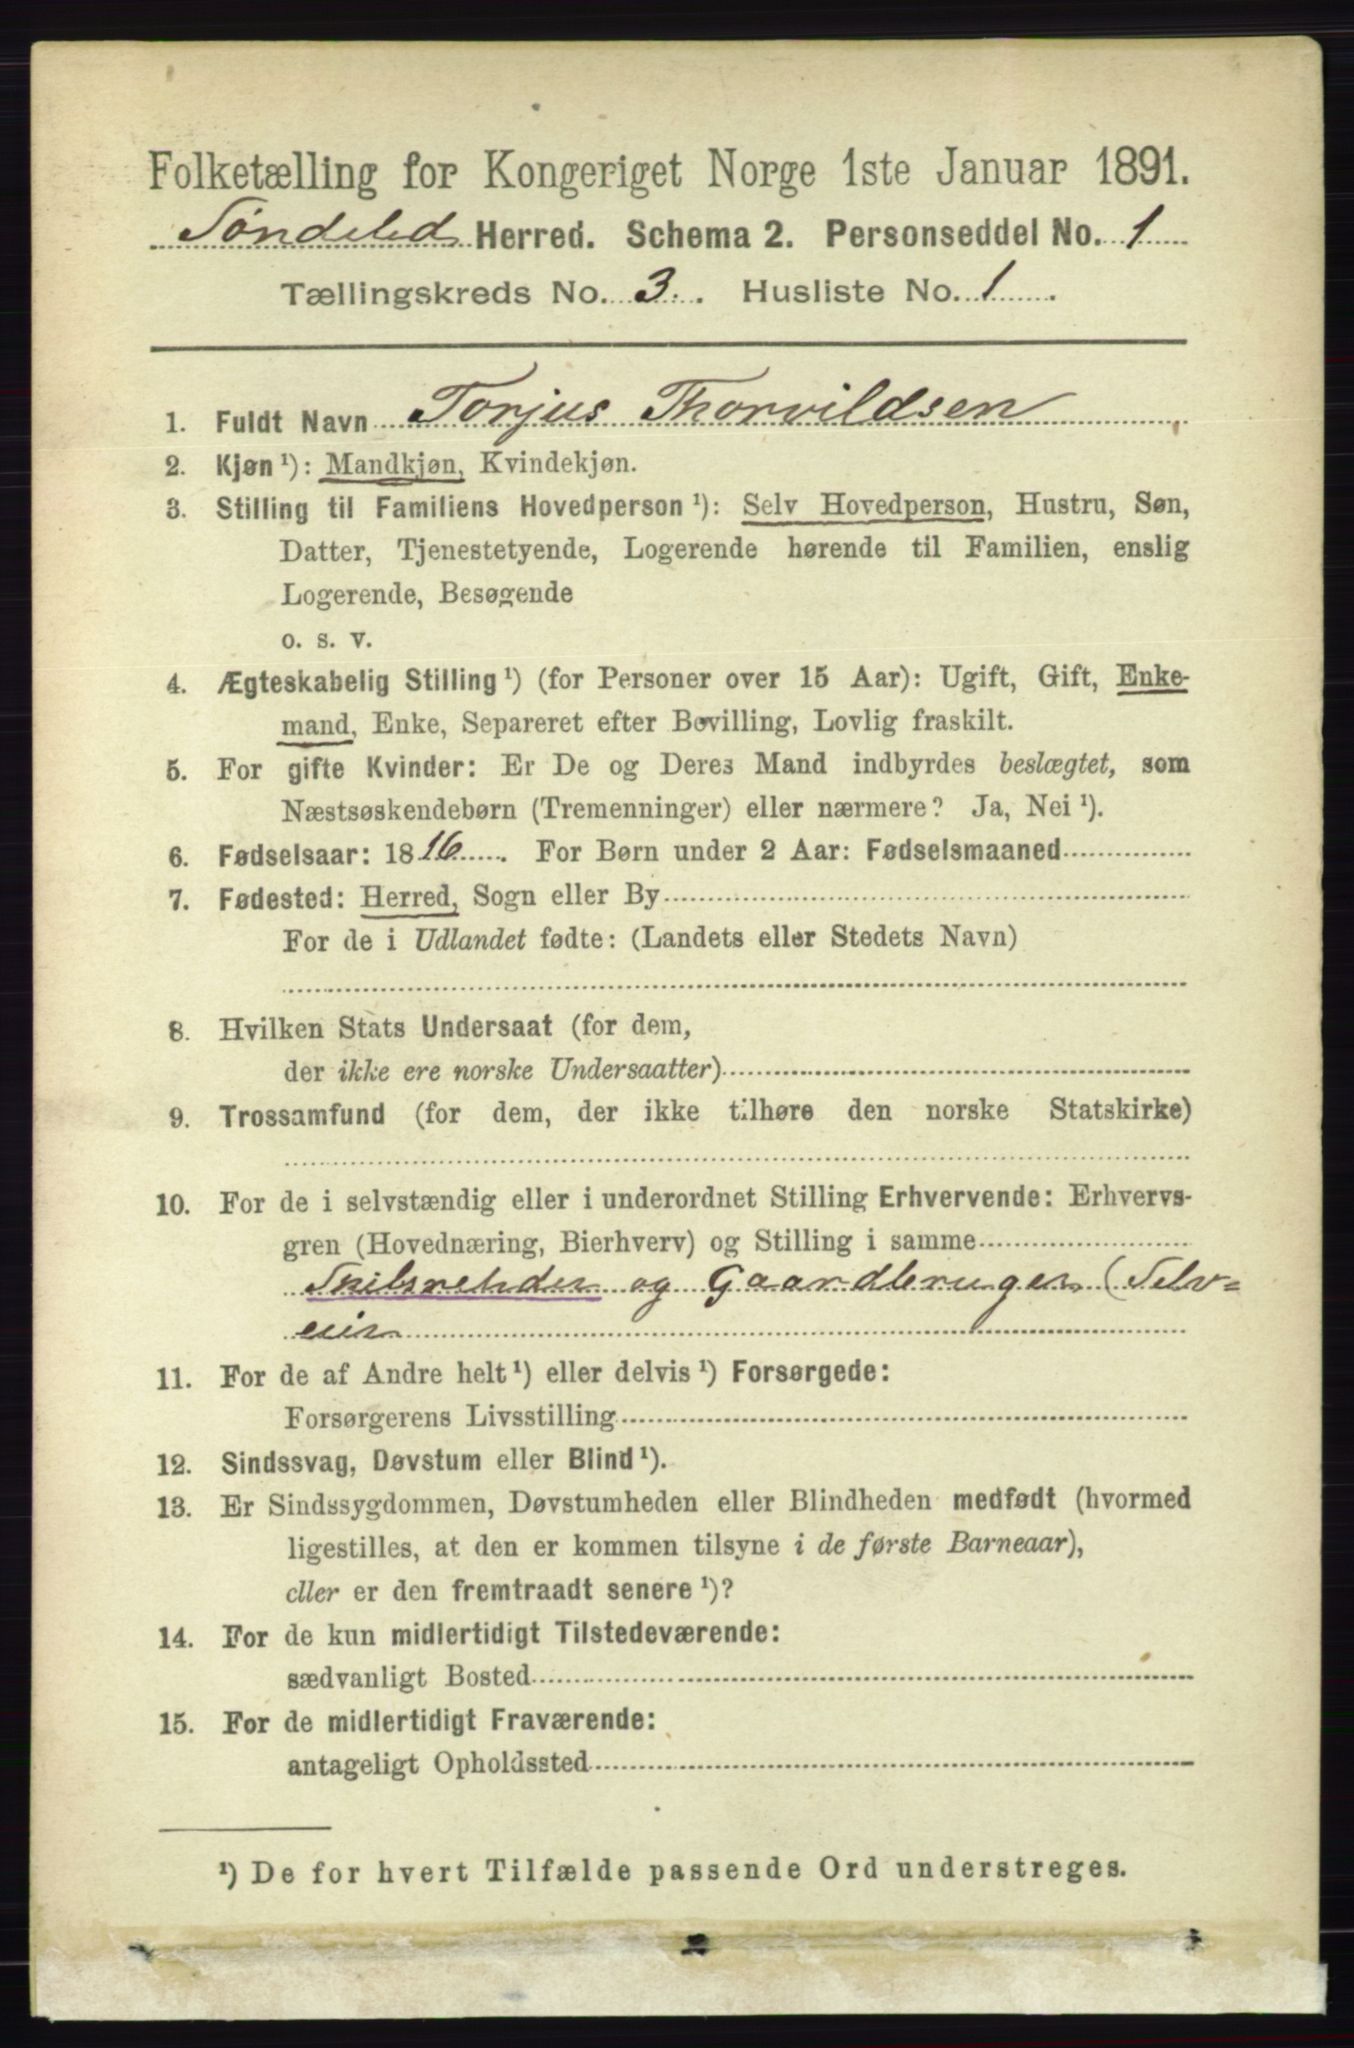 Folketælling for Kongeriget Norge 1ste Januar 1891.
Söndeled Herred. Schema 2. Personseddel No. 1
Tællingskreds No. 3. Husliste No. 1.
1. Fuldt Navn Torjus Thorvildsen
2. Kjøn ¹): Mandkjøn, Kvindekjøn.
3. Stilling til Familiens Hovedperson ¹): Selv Hovedperson, Hustru, Søn,
Datter, Tjenestetyende, Logerende hørende til Familien, enslig
Logerende, Besøgende
o. s. v.
4. Ægteskabelig Stilling ¹) (for Personer over 15 Aar): Ugift, Gift, Enke-
mand, Enke, Separeret efter Bevilling, Lovlig fraskilt.
5. For gifte Kvinder: Er De og Deres Mand indbyrdes beslægtet, som
Næstsøskendebørn (Tremenninger) eller nærmere? Ja, Nei ¹).
6. Fødselsaar: 1816. For Børn under 2 Aar: Fødselsmaaned
7. Fødested: Herred, Sogn eller By
For de i Udlandet fødte: (Landets eller Stedets Navn)
8. Hvilken Stats Undersaat (for dem,
der ikke ere norske Undersaatter)
9. Trossamfund (for dem, der ikke tilhøre den norske Statskirke)
10. For de i selvstændig eller i underordnet Stilling Erhvervende: Erhvervs-
gren (Hovednæring, Bierhverv) og Stilling i samme
Skibsrehder og Gaardbruger (Selv=
eier
11. For de af Andre helt ¹) eller delvis ¹) Forsørgede:
Forsørgerens Livsstilling
12. Sindssvag, Døvstum eller Blind ¹).
13. Er Sindssygdommen, Døvstumheden eller Blindheden medfødt (hvormed
ligestilles, at den er kommen tilsyne i de første Barneaar),
eller er den fremtraadt senere ¹)?
14. For de kun midlertidigt Tilstedeværende:
sædvanligt Bosted
15. For de midlertidigt Fraværende:
antageligt Opholdssted
¹) De for hvert Tilfælde passende Ord understreges.